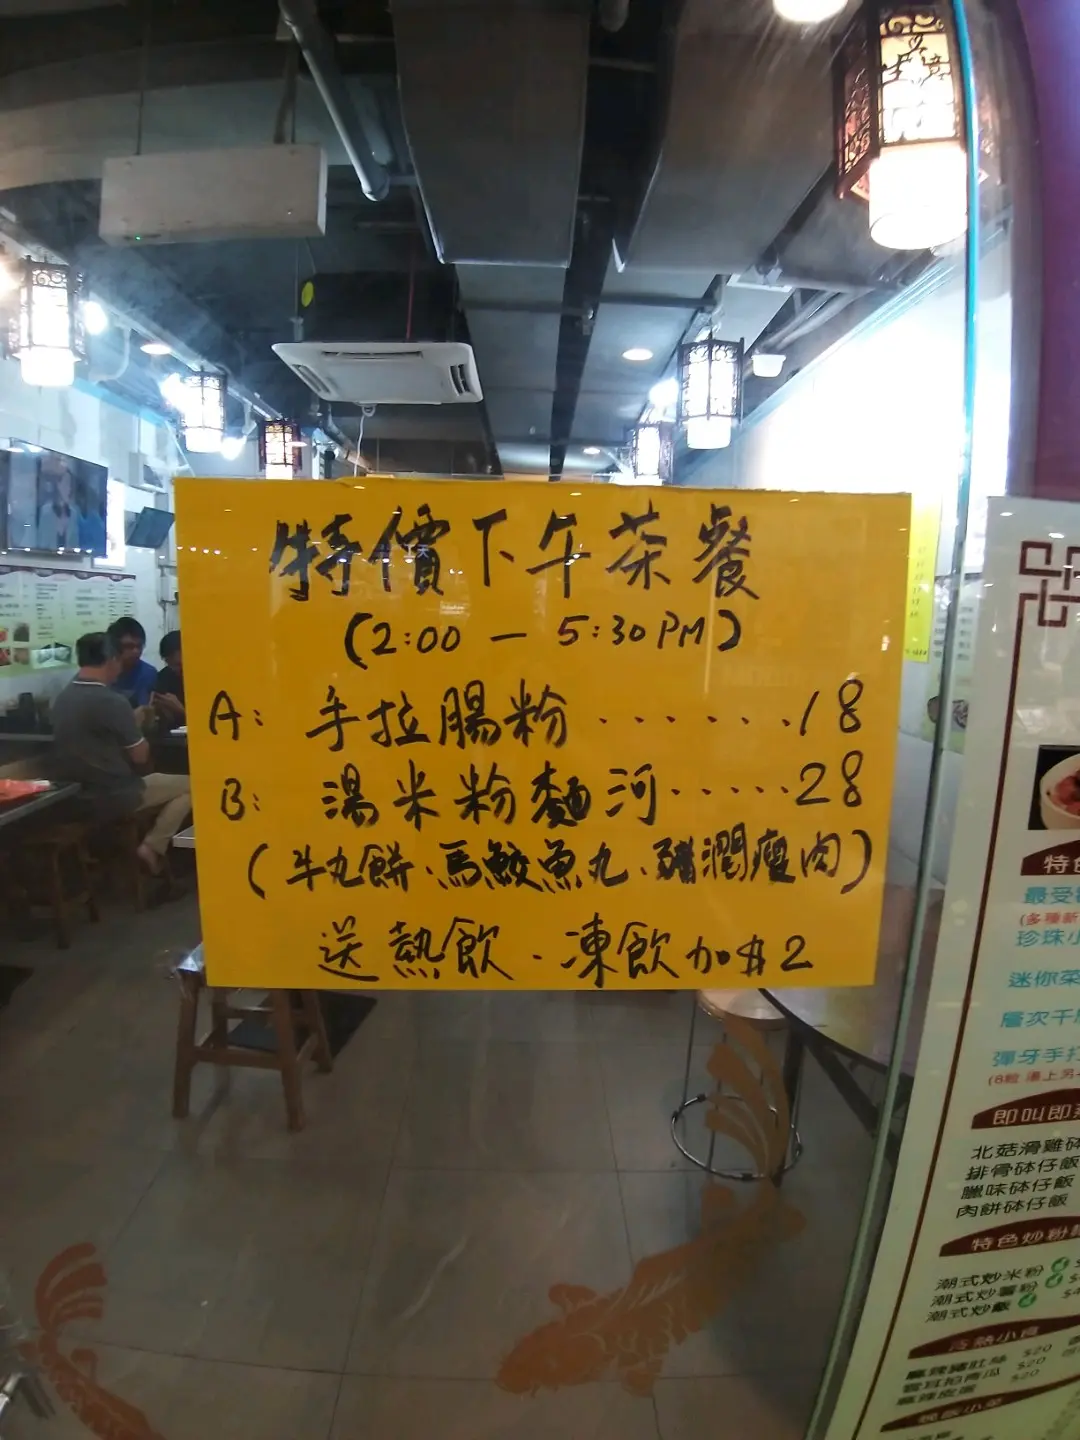 特價下午茶餐
(2:00 — 5:30PM)
A: 手拉腸粉.......18
B: 湯米粉麵河.....28
(牛丸餅、馬鮫魚丸、豬潤瘦肉)
送熱飲.凍飲加$2
特色
最受
(多種新
珍珠小
迷你菜
層次千
彈牙手打
(6粒 湯上另
即叫即蒸
北菇滑雞砵
排骨砵仔飯
臘味砵仔飯
肉餅砵仔飯
特色炒粉麵
潮式炒米粉
潮式炒薯粉
潮式炒飯
冷熱小食
$20
雲耳拍青瓜 $20
麻辣皮蛋 $20